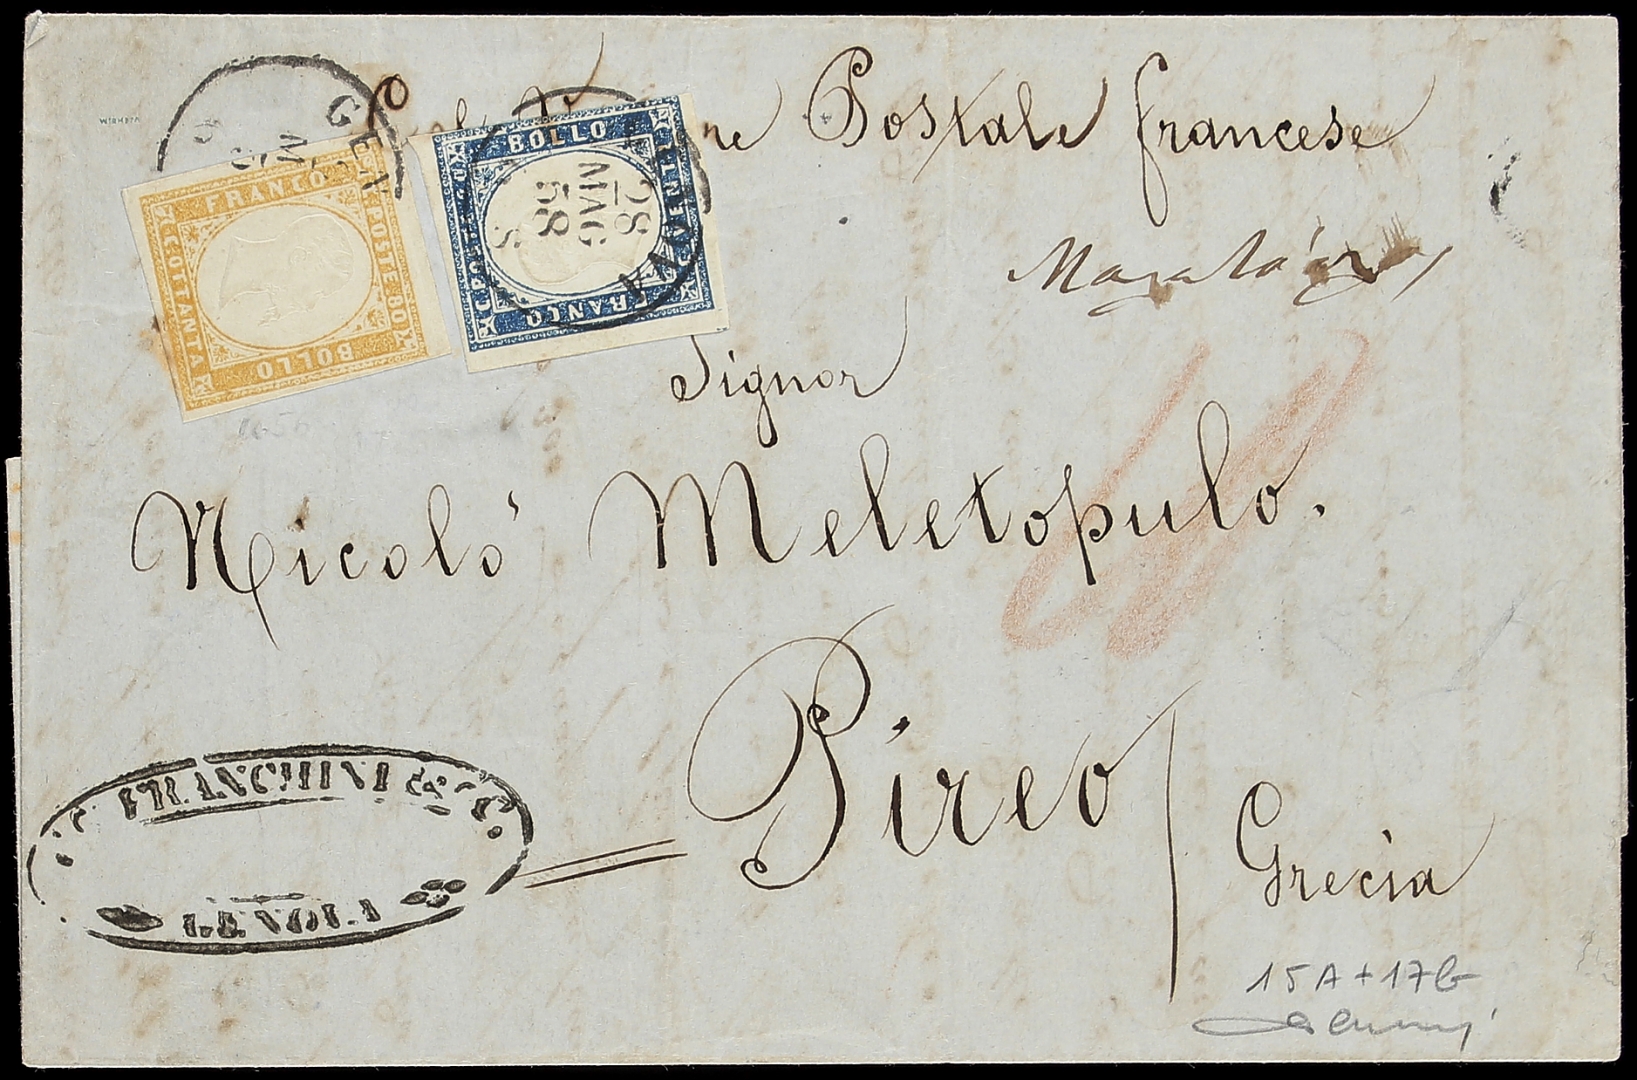 Col Vapore Postale francese
GENOVA
28
MAG
58
S
GENO
FRANCO
POSTE 80
BOLLO
C. OTTANTA
BOLLO
C. VENTI
FRANCO
C. POSTE 20
Signor
Nicolò Meletopulo.
Pireo
Grecia
FRANCHINI & C.
GENOVA
15A+17b